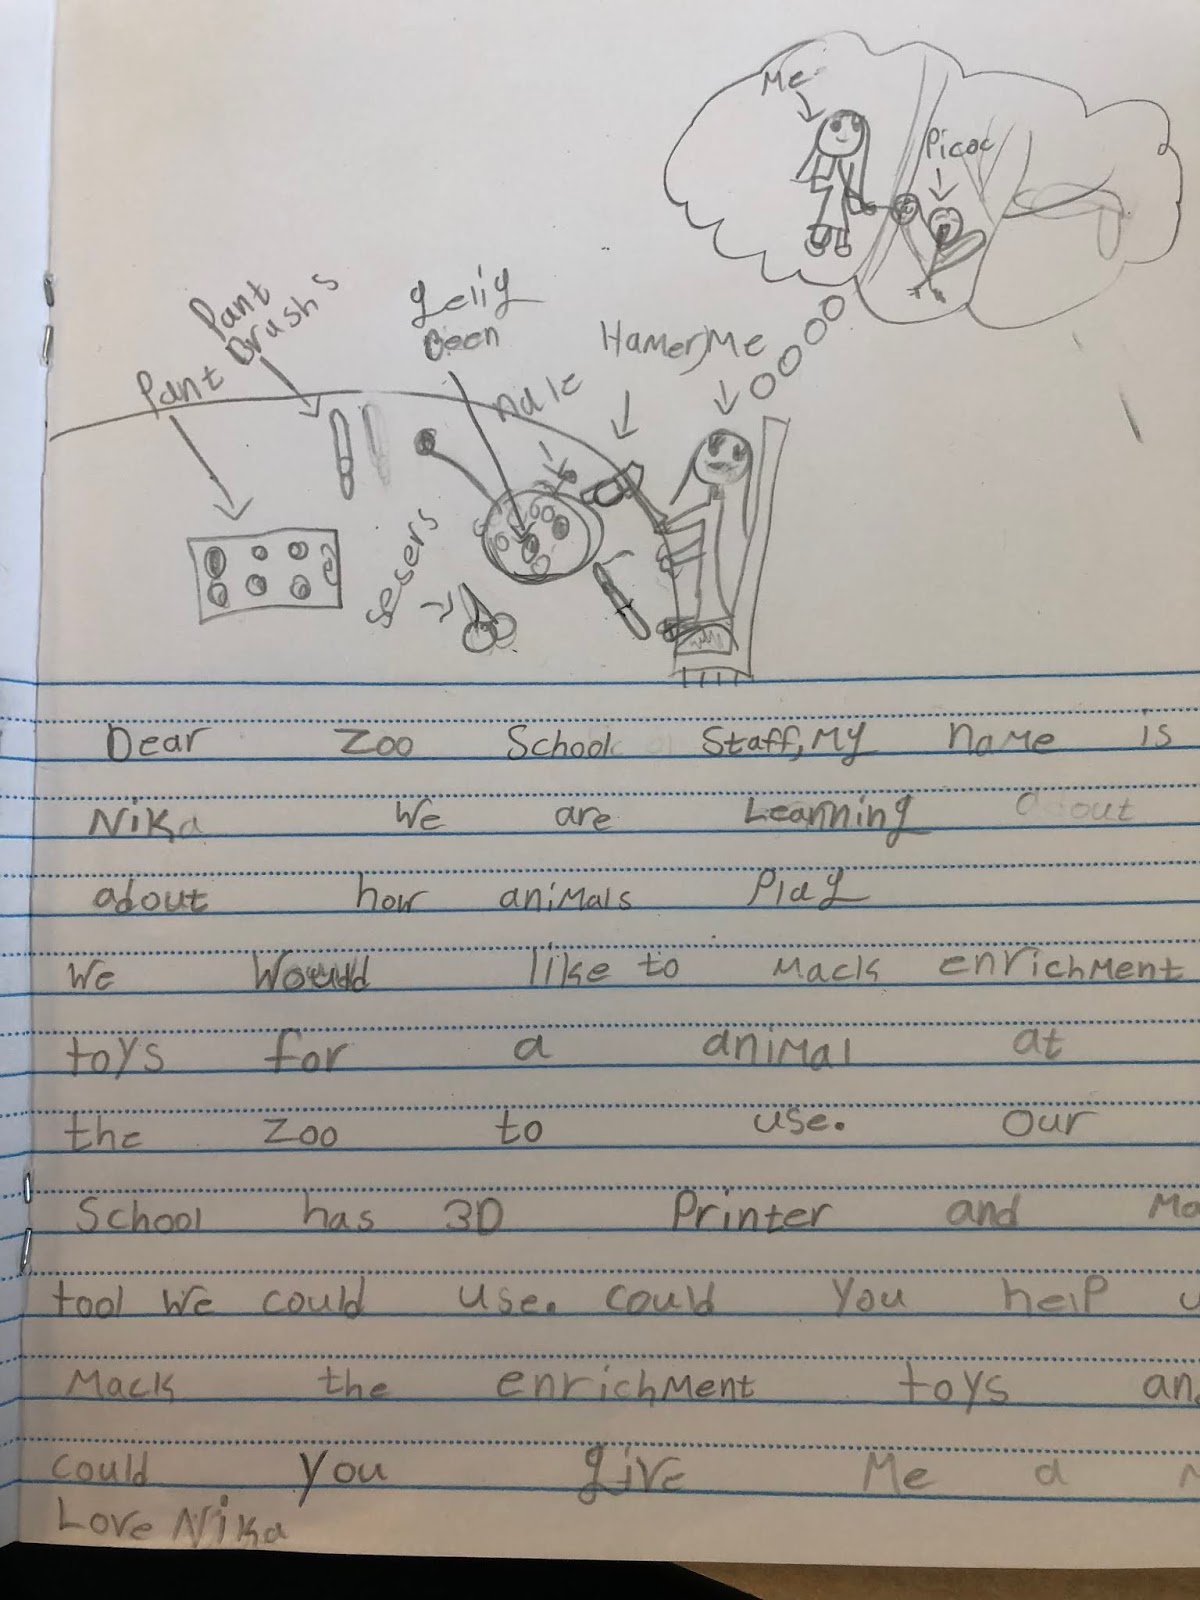 Me
Picoc
Pant
brushs
gelig
Been
Hamer, Me
Pant
nale
sesers
Dear Zoo School Staff, My name is
Nika We are Leanning about
about how animals Play
We Would like to mack enrichment
toys for a animal at
the Zoo to use. Our
School has 3D Printer and Mo
tool We could use. could You help u
Mack the enrichment toys an
could you give Me a
Love Nika